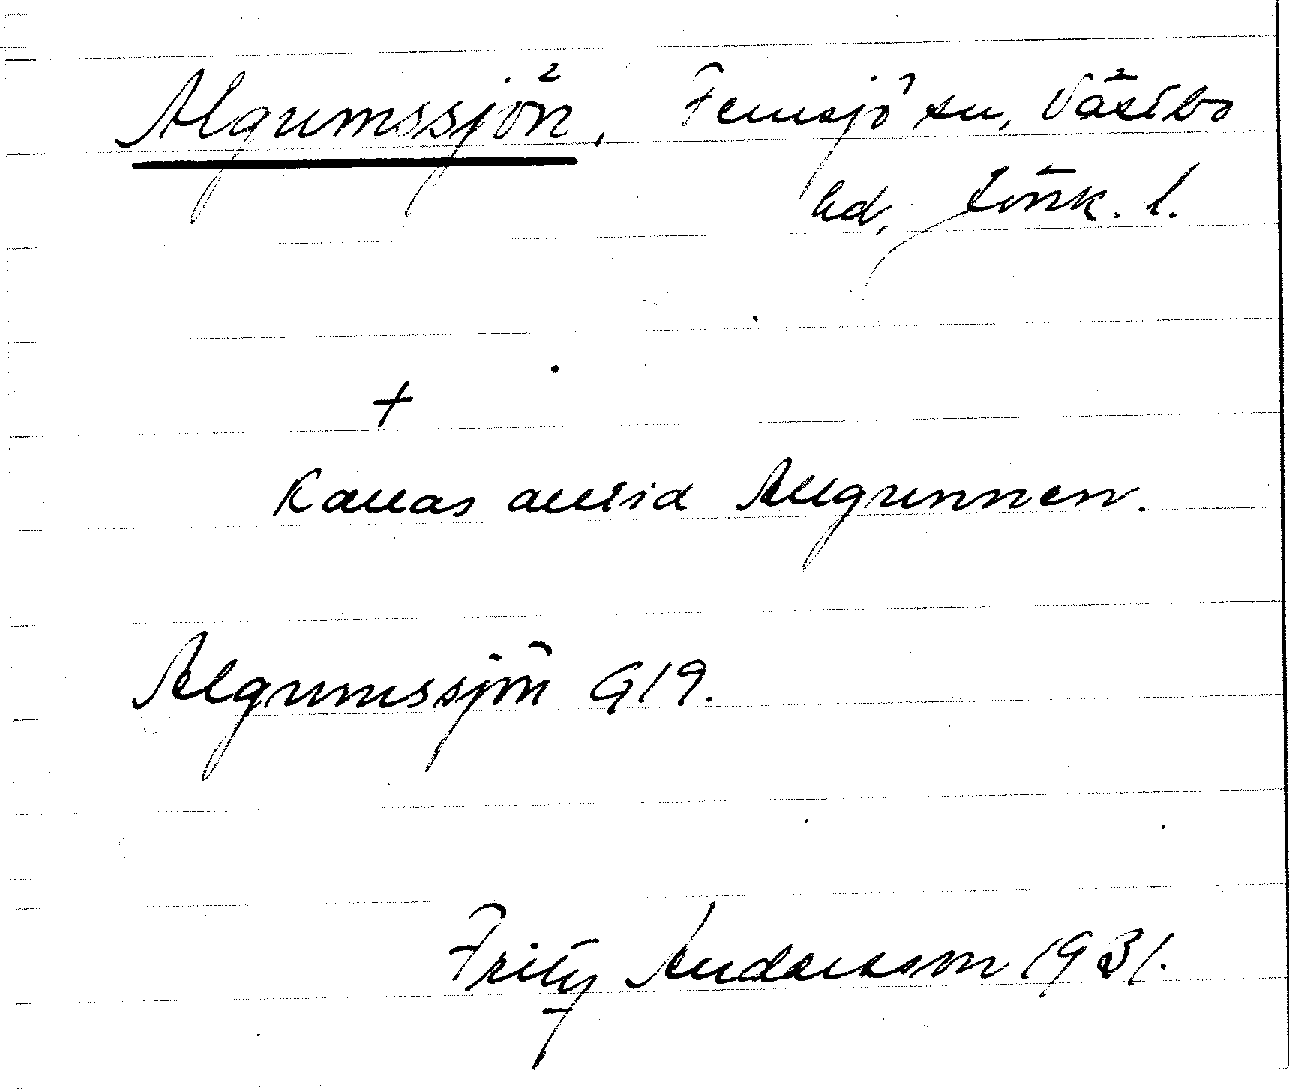 Algumssjön, Femsjö sn, Västbo
hd, Jönk. l.
+
Kallas alltid Allgunnen.
Algumssjön G19.
Fritz Andersson 1931.